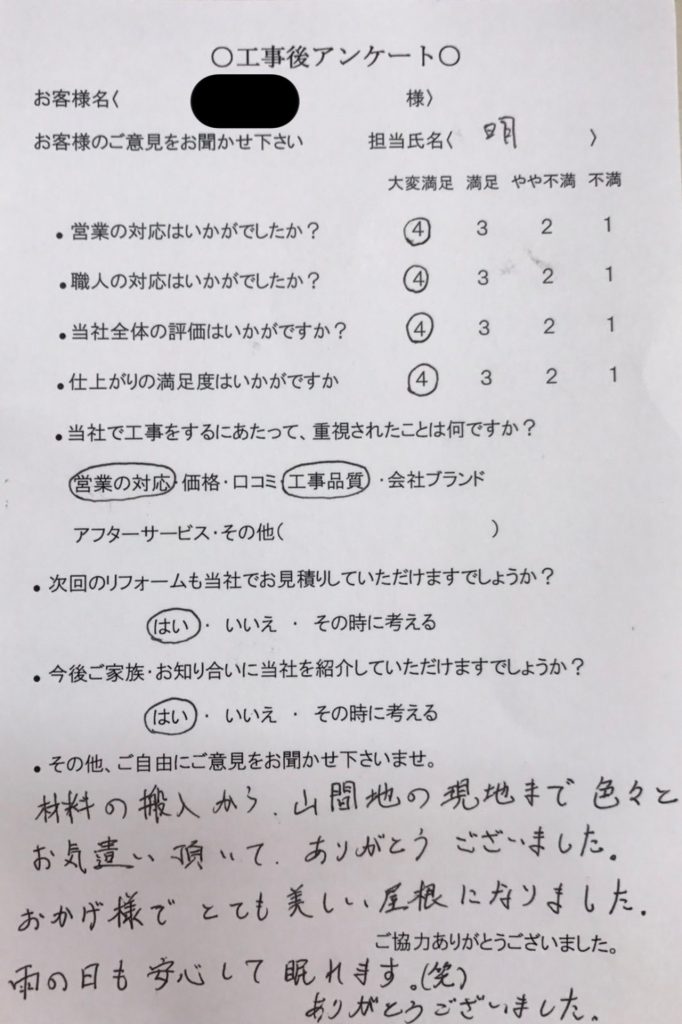 〇工事後アンケート〇
お客様名〈 様〉
お客様のご意見をお聞かせ下さい 担当氏名〈 明 〉
大変満足 満足 やや不満 不満
・営業の対応はいかがでしたか？ 4 3 2 1
・職人の対応はいかがでしたか？ 4 3 2 1
・当社全体の評価はいかがですか？ 4 3 2 1
・仕上がりの満足度はいかがですか 4 3 2 1
・当社で工事をするにあたって、重視されたことは何ですか？
営業の対応・価格・口コミ・工事品質・会社ブランド
アフターサービス・その他( )
・次回のリフォームも当社でお見積りしていただけますでしょうか？
はい・いいえ・その時に考える
・今後ご家族・お知り合いに当社を紹介していただけますでしょうか？
はい・いいえ・その時に考える
・その他、ご自由にご意見をお聞かせ下さいませ。
材料の搬入から、山間地の現地まで色々と
お気遣い頂いて、ありがとうございました。
おかげ様でとても美しい屋根になりました。
ご協力ありがとうございました。
雨の日も安心して眠れます。(笑)
ありがとうございました。